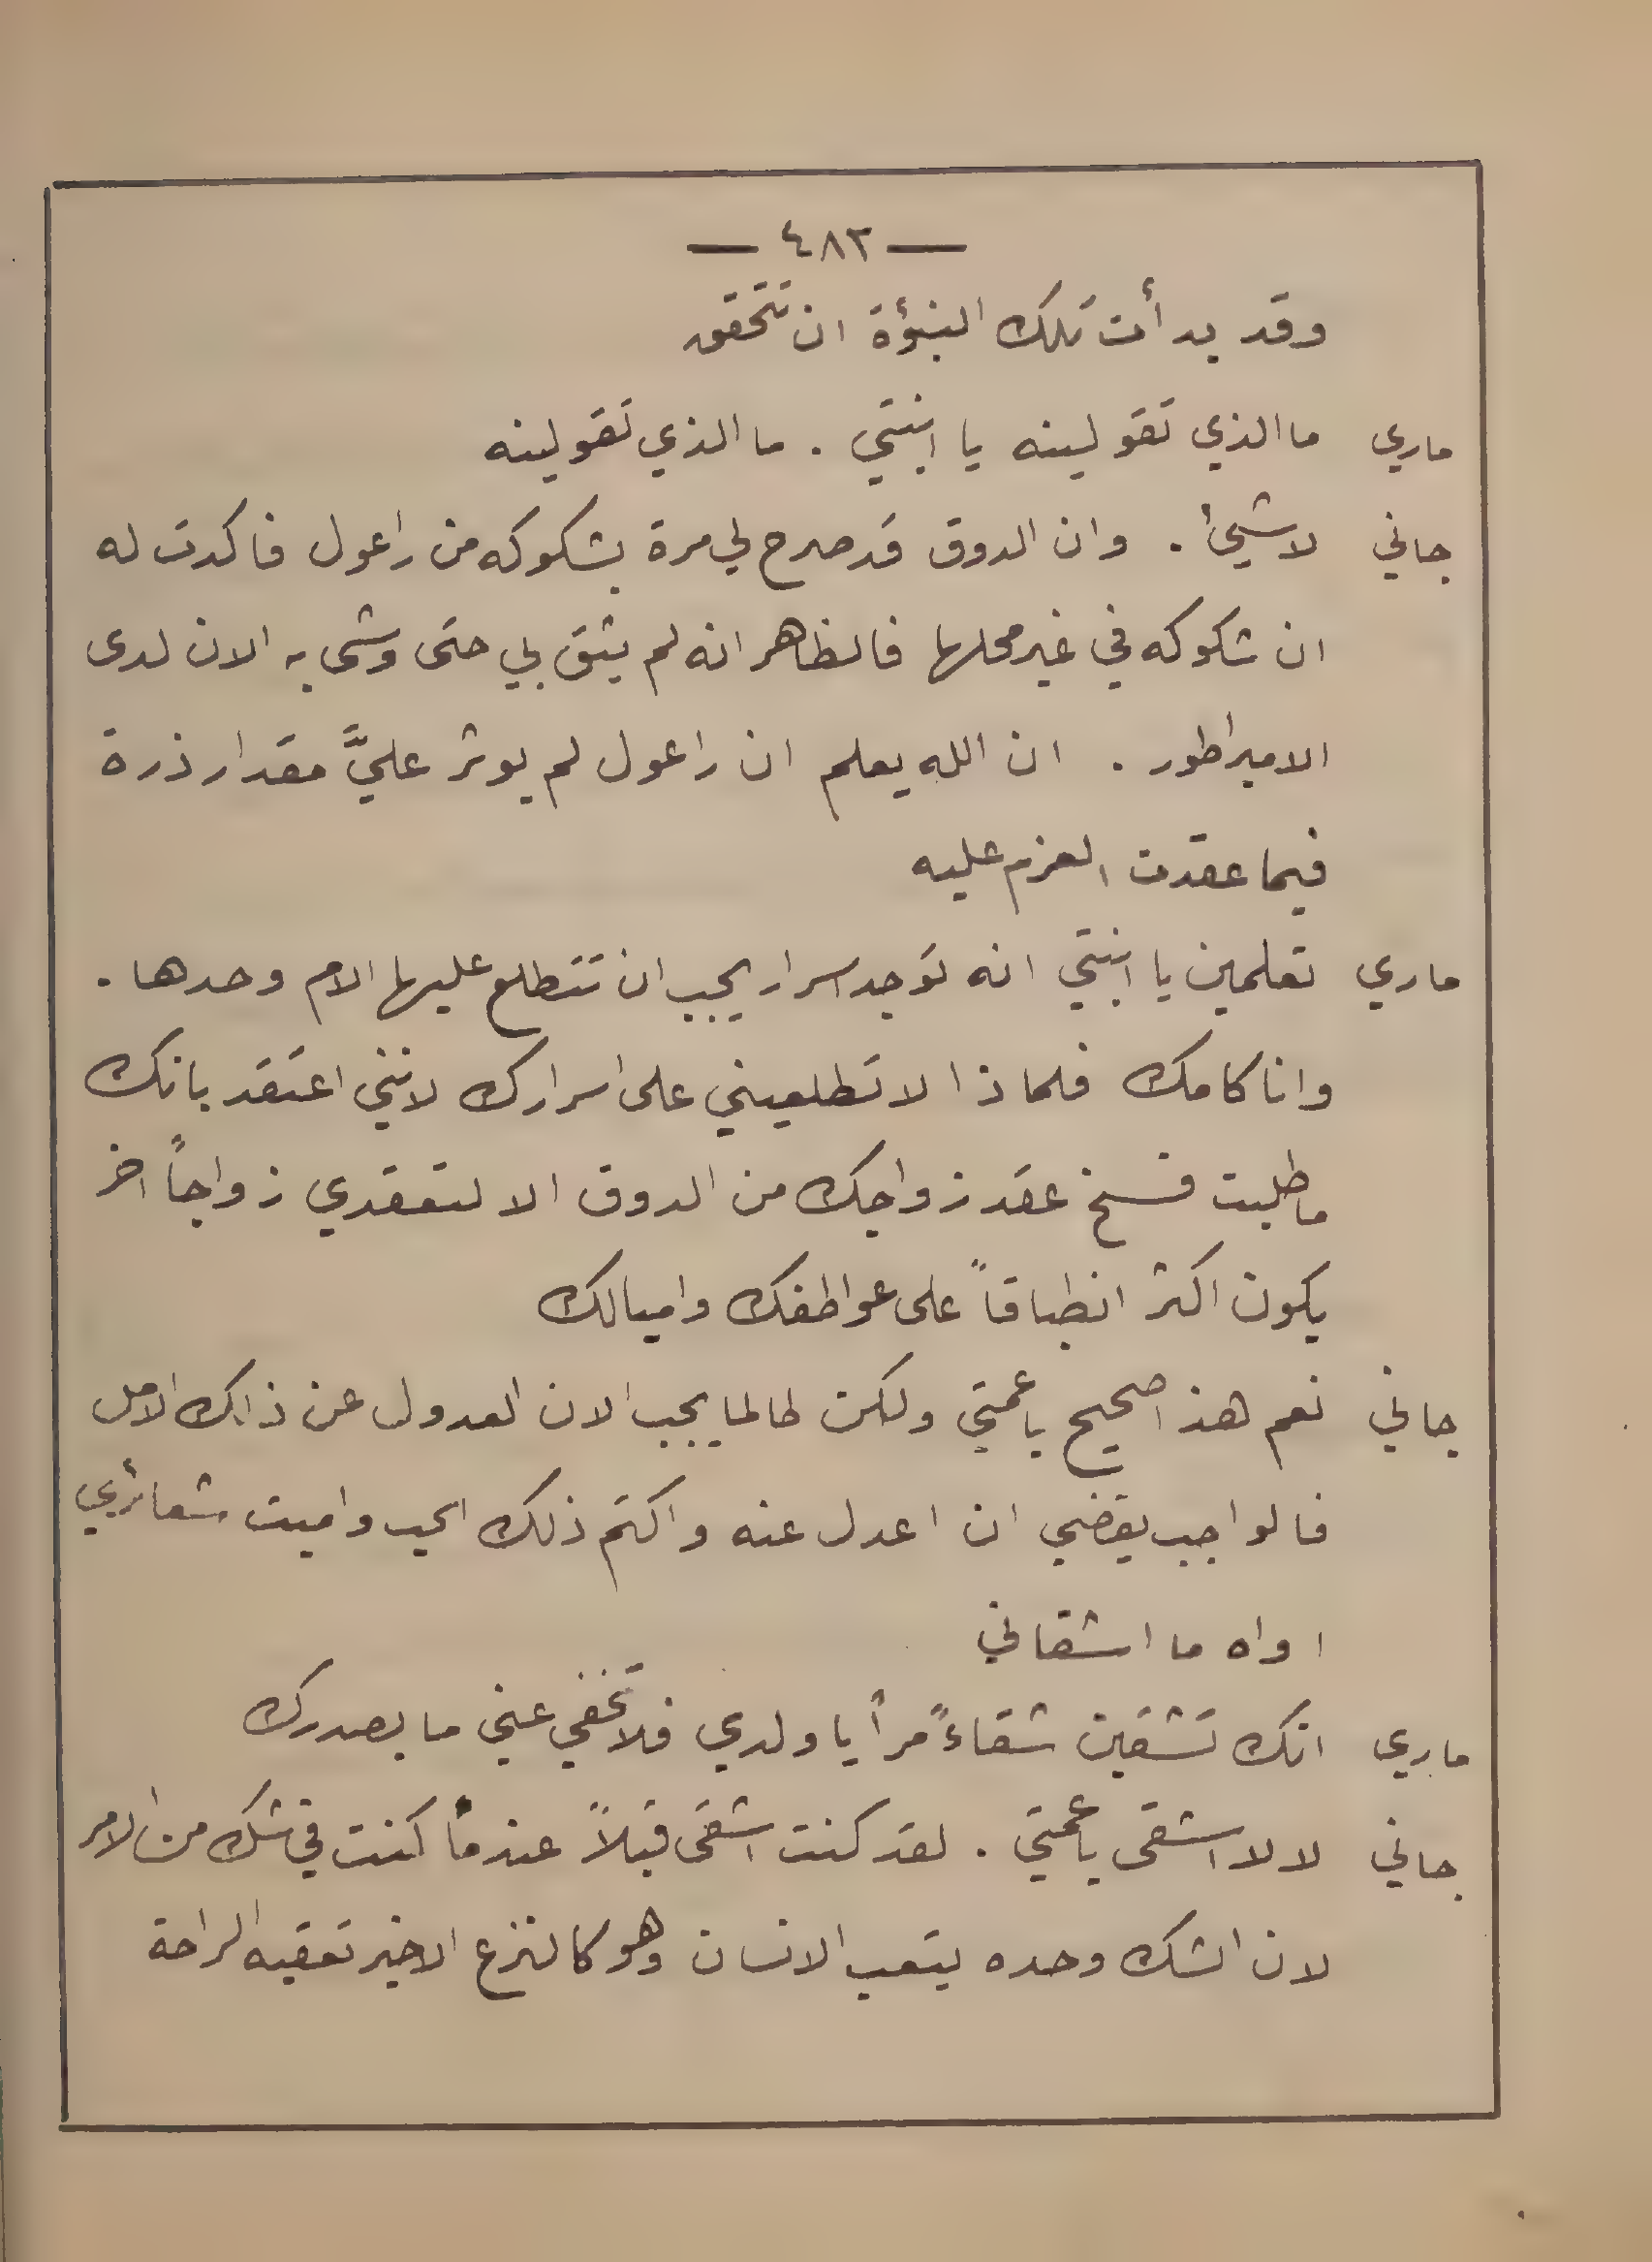 — ٤٨٣ —
وقد بدأت تلك النبؤة ان تتحقق
ماري ما الذي تقولينه يا ابنتي . ما الذي تقولينه
جاني لا شيئ . وان الدوق قد صرح لي مرة بشكوكه من راعول فاكدت له
ان شكوكه في غير محلها فالظاهر انه لم يثق بي حتى وشى به الان لدى
الامبراطور . ان الله يعلم ان راعول لم يوثر عليَّ مقدار ذرة
فيما عقدت العزم عليه
ماري تعلمين يا ابنتي انه توجد اسرار يجب ان تتطلع عليها الام وحدها .
وانا كامك فلماذا لا تطلعيني على اسرارك لانني اعتقد بانك
ما طلبت فسخ عقد زواجك من الدوق الا لتعقدي زواجاً اخر
يكون اكثر انطباقاً على عواطفك واميالك
جاني نعم هذا صحيح يا عمتي ولكن طالما يجب الان العدول عن ذلك الامل
فالواجب يقضي ان اعدل عنه واكتم ذلك الحب واميت شعائري
اواه ما اشقاني
ماري انك تشقين شقاءً مراً يا ولدي فلا تخفي عني ما بصدرك
جاني لا لا اشقى يا عمتي . لقد كنت اشقى قبلاً عندما كنت في شك من الامر
لان الشك وحده يتعب الانسان وهو كالنزع الاخير تعقبه الراحة